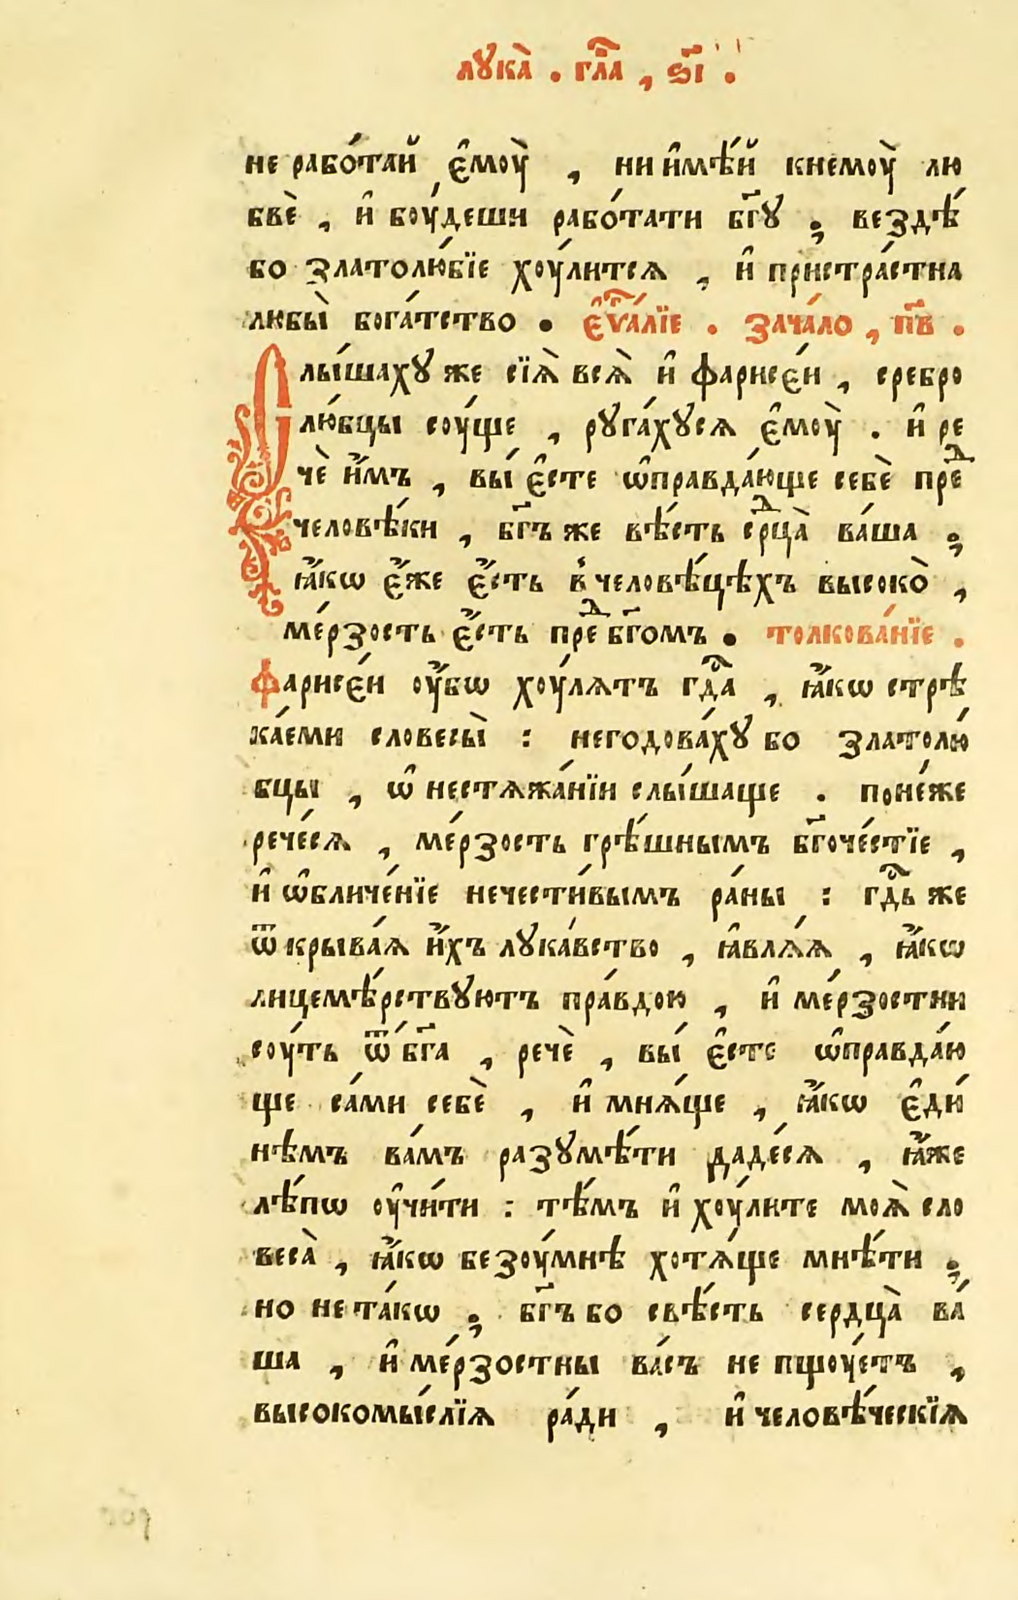 лꙋка̀ . гл҃а , ѕ҃і .
не рабо́тай є҆моу̀ , ни и҆мѣ́й кнемоу̀ лю
бвѐ , и҆ боу́деши рабо́тати бг҃ꙋ ; вездѣ́
бо златолю́бїе хоу́литсѧ , и҆ пристра́стна
любы̀ бога́тство . є҆ѵⷢ҇а́лїе . зача́ло , п҃в .
Слы́шахꙋ же сїѧ̀ всѧ̀ и҆ фарисе́и , сребро
лю́бцы соу́ще , рꙋга́хꙋсѧ є҆моу̀ . и҆ ре
чѐ и҆̀мъ , вы́ є҆сте ѡ҆правда́юще себѐ преⷣ
человѣ́ки , бг҃ъ же вѣ́сть срⷣца̀ ва́ша ;
ꙗ҆́кѡ є҆́же є҆́сть в̾человѣ́цѣхъ высоко̀ ,
ме́рзость є҆́сть преⷣ бг҃омъ . толкова́нїе .
Фарисе́и оу҆́бѡ хоу́лѧтъ гдⷭ҇а , ꙗ҆́кѡ стрѣ
ка́еми словесы̀ : негодова́хꙋ бо златолю́
бцы , ѡ҆ нестѧжа́нїи слы́шаще . поне́же
рече́сѧ , ме́рзость грѣ́шнымъ бг҃оче́стїе ,
и҆ ѡ҆бличе́нїе нечести́вымъ ра́ны : гдⷭ҇ь же
ѿкрыва́ѧ и҆́хъ лꙋка́вство , ꙗ҆влѧ́ѧ , ꙗ҆́кѡ
лицемѣ́рствꙋютъ пра́вдою , и҆ ме́рзостни
соу́ть ѿ бг҃а , речѐ , вы́ є҆сте ѡ҆правда́ю
ще са́ми себѐ , и҆ мнѧ́ще , ꙗ҆́кѡ є҆ди́
нѣмъ ва́мъ разꙋмѣ́ти даде́сѧ , ꙗ҆́же
лѣ́пѡ оу҆чи́ти : тѣ́мъ и҆ хоу́лите моѧ̀ сло
веса̀ , ꙗ҆́кѡ безоу́мнѣ хотѧ́ще мнѣ́ти ;
но не та́кѡ ; бг҃ъ бо свѣ́сть сердца̀ ва́
ша , и҆ ме́рзостны ва́съ не пщоу́етъ ,
высокомы́слїѧ ра́ди , и҆ человѣ́ческїѧ